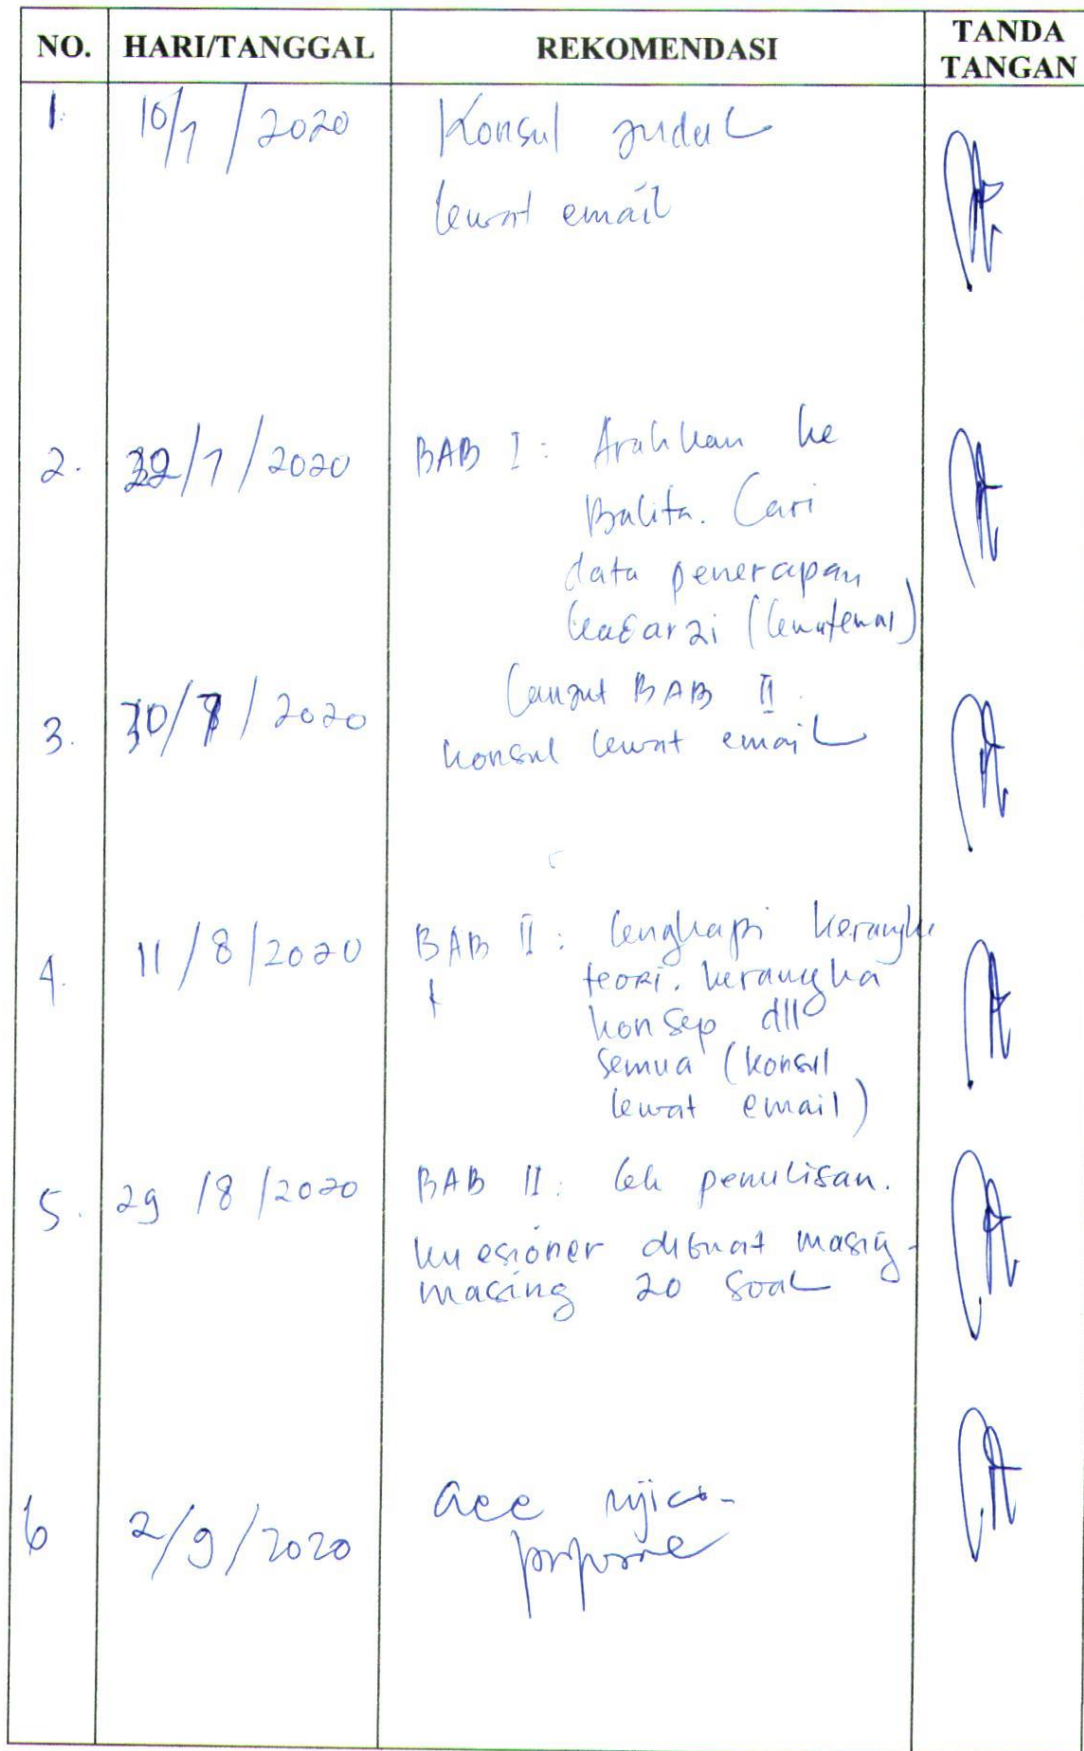 NO. HARI/TANGGAL REKOMENDASI TANDA TANGAN
1. 10/7/2020 Konsul judul
lewat email
2. 22/7/2020 BAB I : Arahkan ke
Balita. Cari
data penerapan
kadarzi
Lanjut BAB II.
3. 30/7/2020 konsul lewat email
4. 11/8/2020 BAB II : lengkapi kerangka
teori. kerangka
konsep dll
semua (konsul
lewat email)
5. 29/8/2020 BAB II : Cek penulisan.
kuesioner dibuat masing-
masing 20 soal
6 2/9/2020 acc